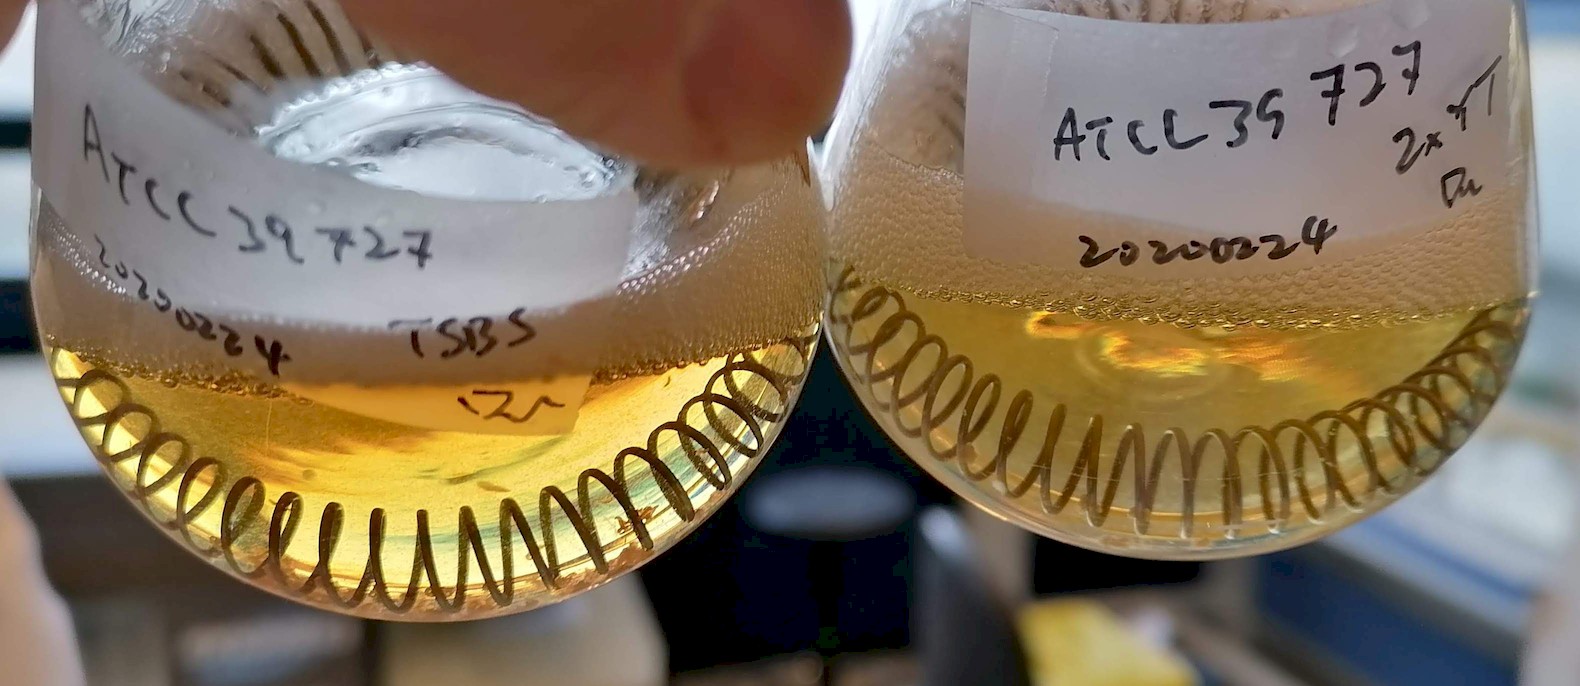 ATCC 39727
20200224
TSBS
ATCC 39727
2xYT
20200224